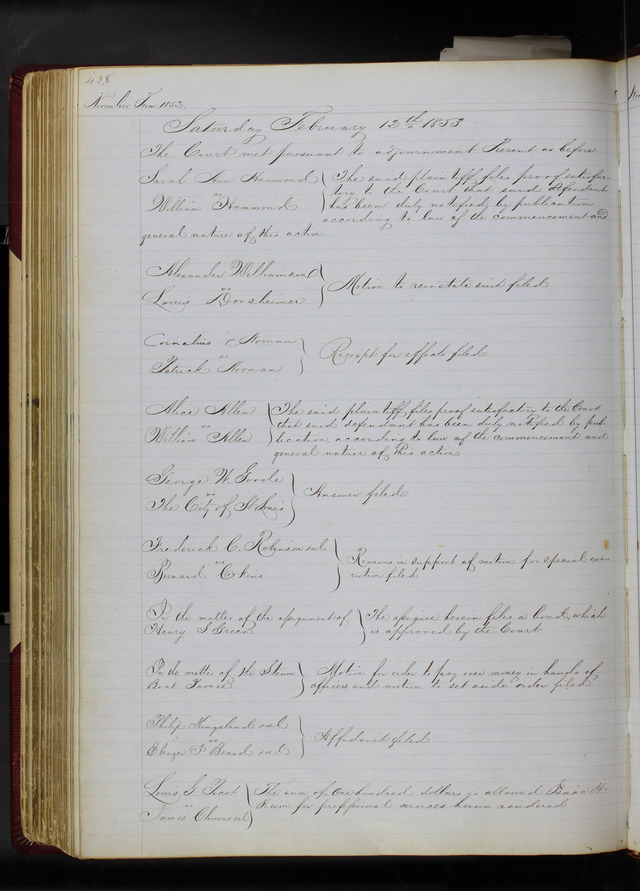 438
November Term 1852.
Saturday February 12th 1853
The Court met pursuant to adjournment Present as before
Sarah Ann Hammond
vs
William Hammond
The said plaintiff files proof satisfac-
tory to the Court that said defendant
has been duly notified by publication
according to law of the commencement and
general nature of this action.
Alexander Williamson
vs
Louis Dorsheimer
Motion to reinstate suit filed
Cornelius Noonan
vs
Patrick Noonan
Receipt for effects filed
Alice Allen
vs
William Allen
The said plaintiff files proof satisfactory to the Court
that said defendant has been duly notified by pub-
lication, according to law of the commencement and
general nature of this action
George W. Goode
vs
The City of St Louis
Answer filed
Frederick C. Robinson et al
vs
Bernard
Reasons in support of motion for special exe-
cution filed
In the matter of the assignment of
Henry Green
The assignee herein files a bond, which
is approved by the Court
In the matter of the Steam
Boat
Motion for order to pay over money in hands of
officer, and motion to set aside order filed
Philip Kingsland et al
vs
Eleazer Beard et al
Affidavit filed
Louis G. Picot
vs
James et al
The sum of one hundred dollars is allowed Isaac H.
for professional services herein rendered